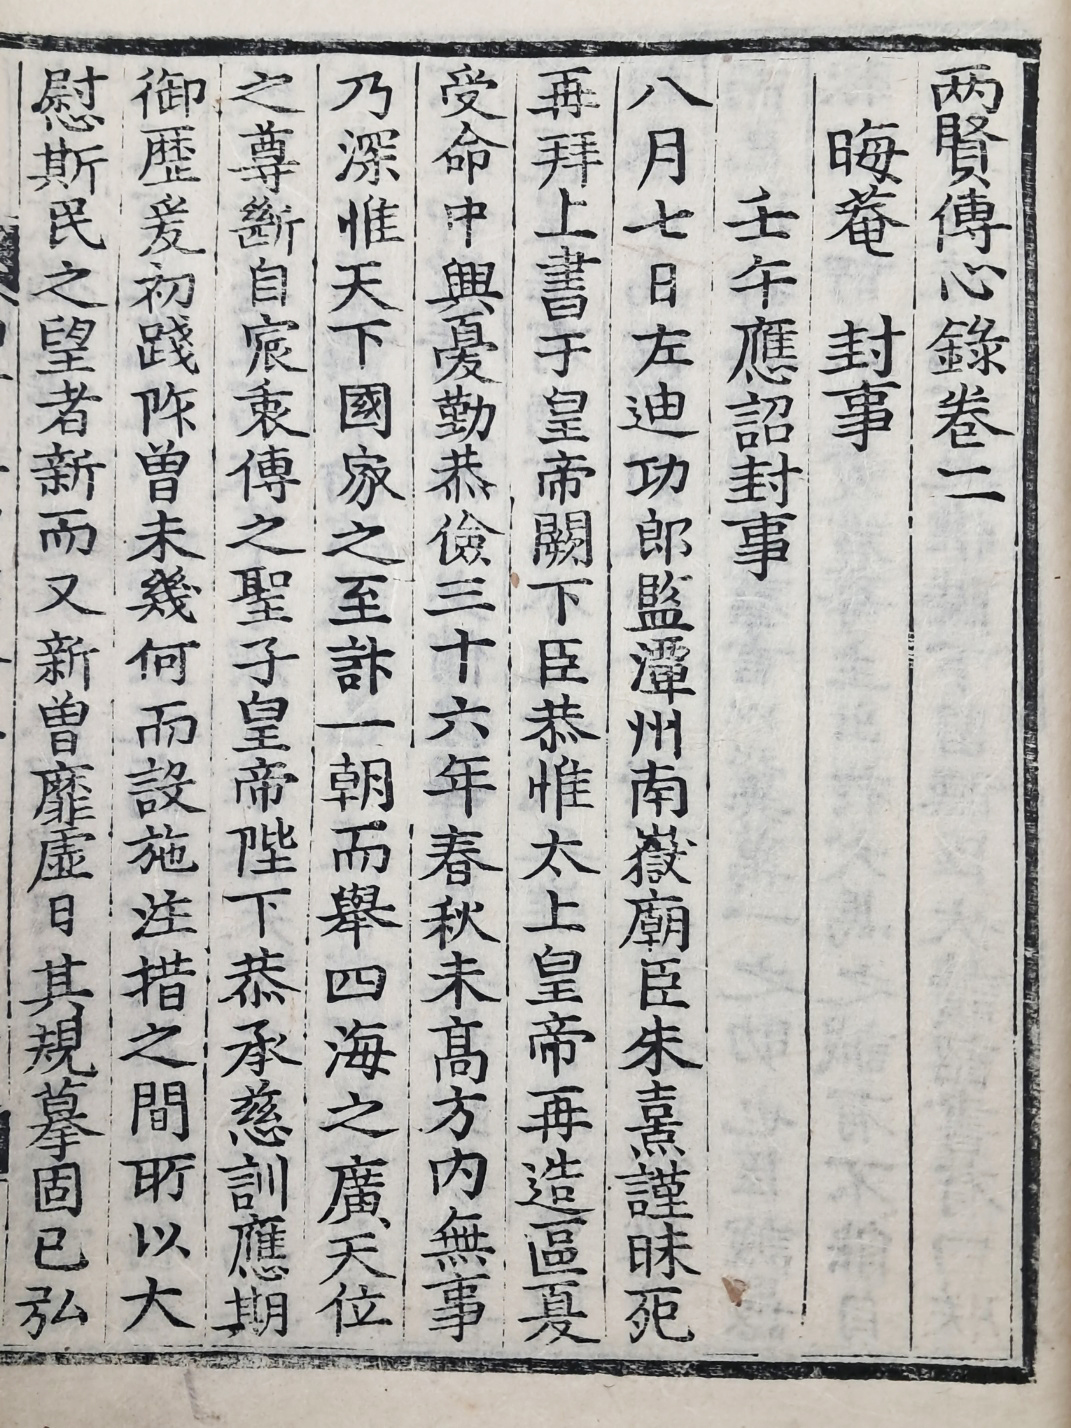 两賢傳心錄卷二
晦菴 封事
壬午應詔封事
八月七日左迪功郎監潭州南嶽廟臣朱熹謹昧死
再拜上書于皇帝闕下臣恭惟太上皇帝再造區夏
受命中興憂勤恭儉三十六年春秋未高方內無事
乃深惟天下國家之至計一朝而舉四海之廣天位
之尊斷自宸衷傳之聖子皇帝陛下恭承慈訓應期
御歷爰初踐阼曾未幾何而設施注措之間所以大
慰斯民之望者新而又新曾靡虛日其規摹固已弘